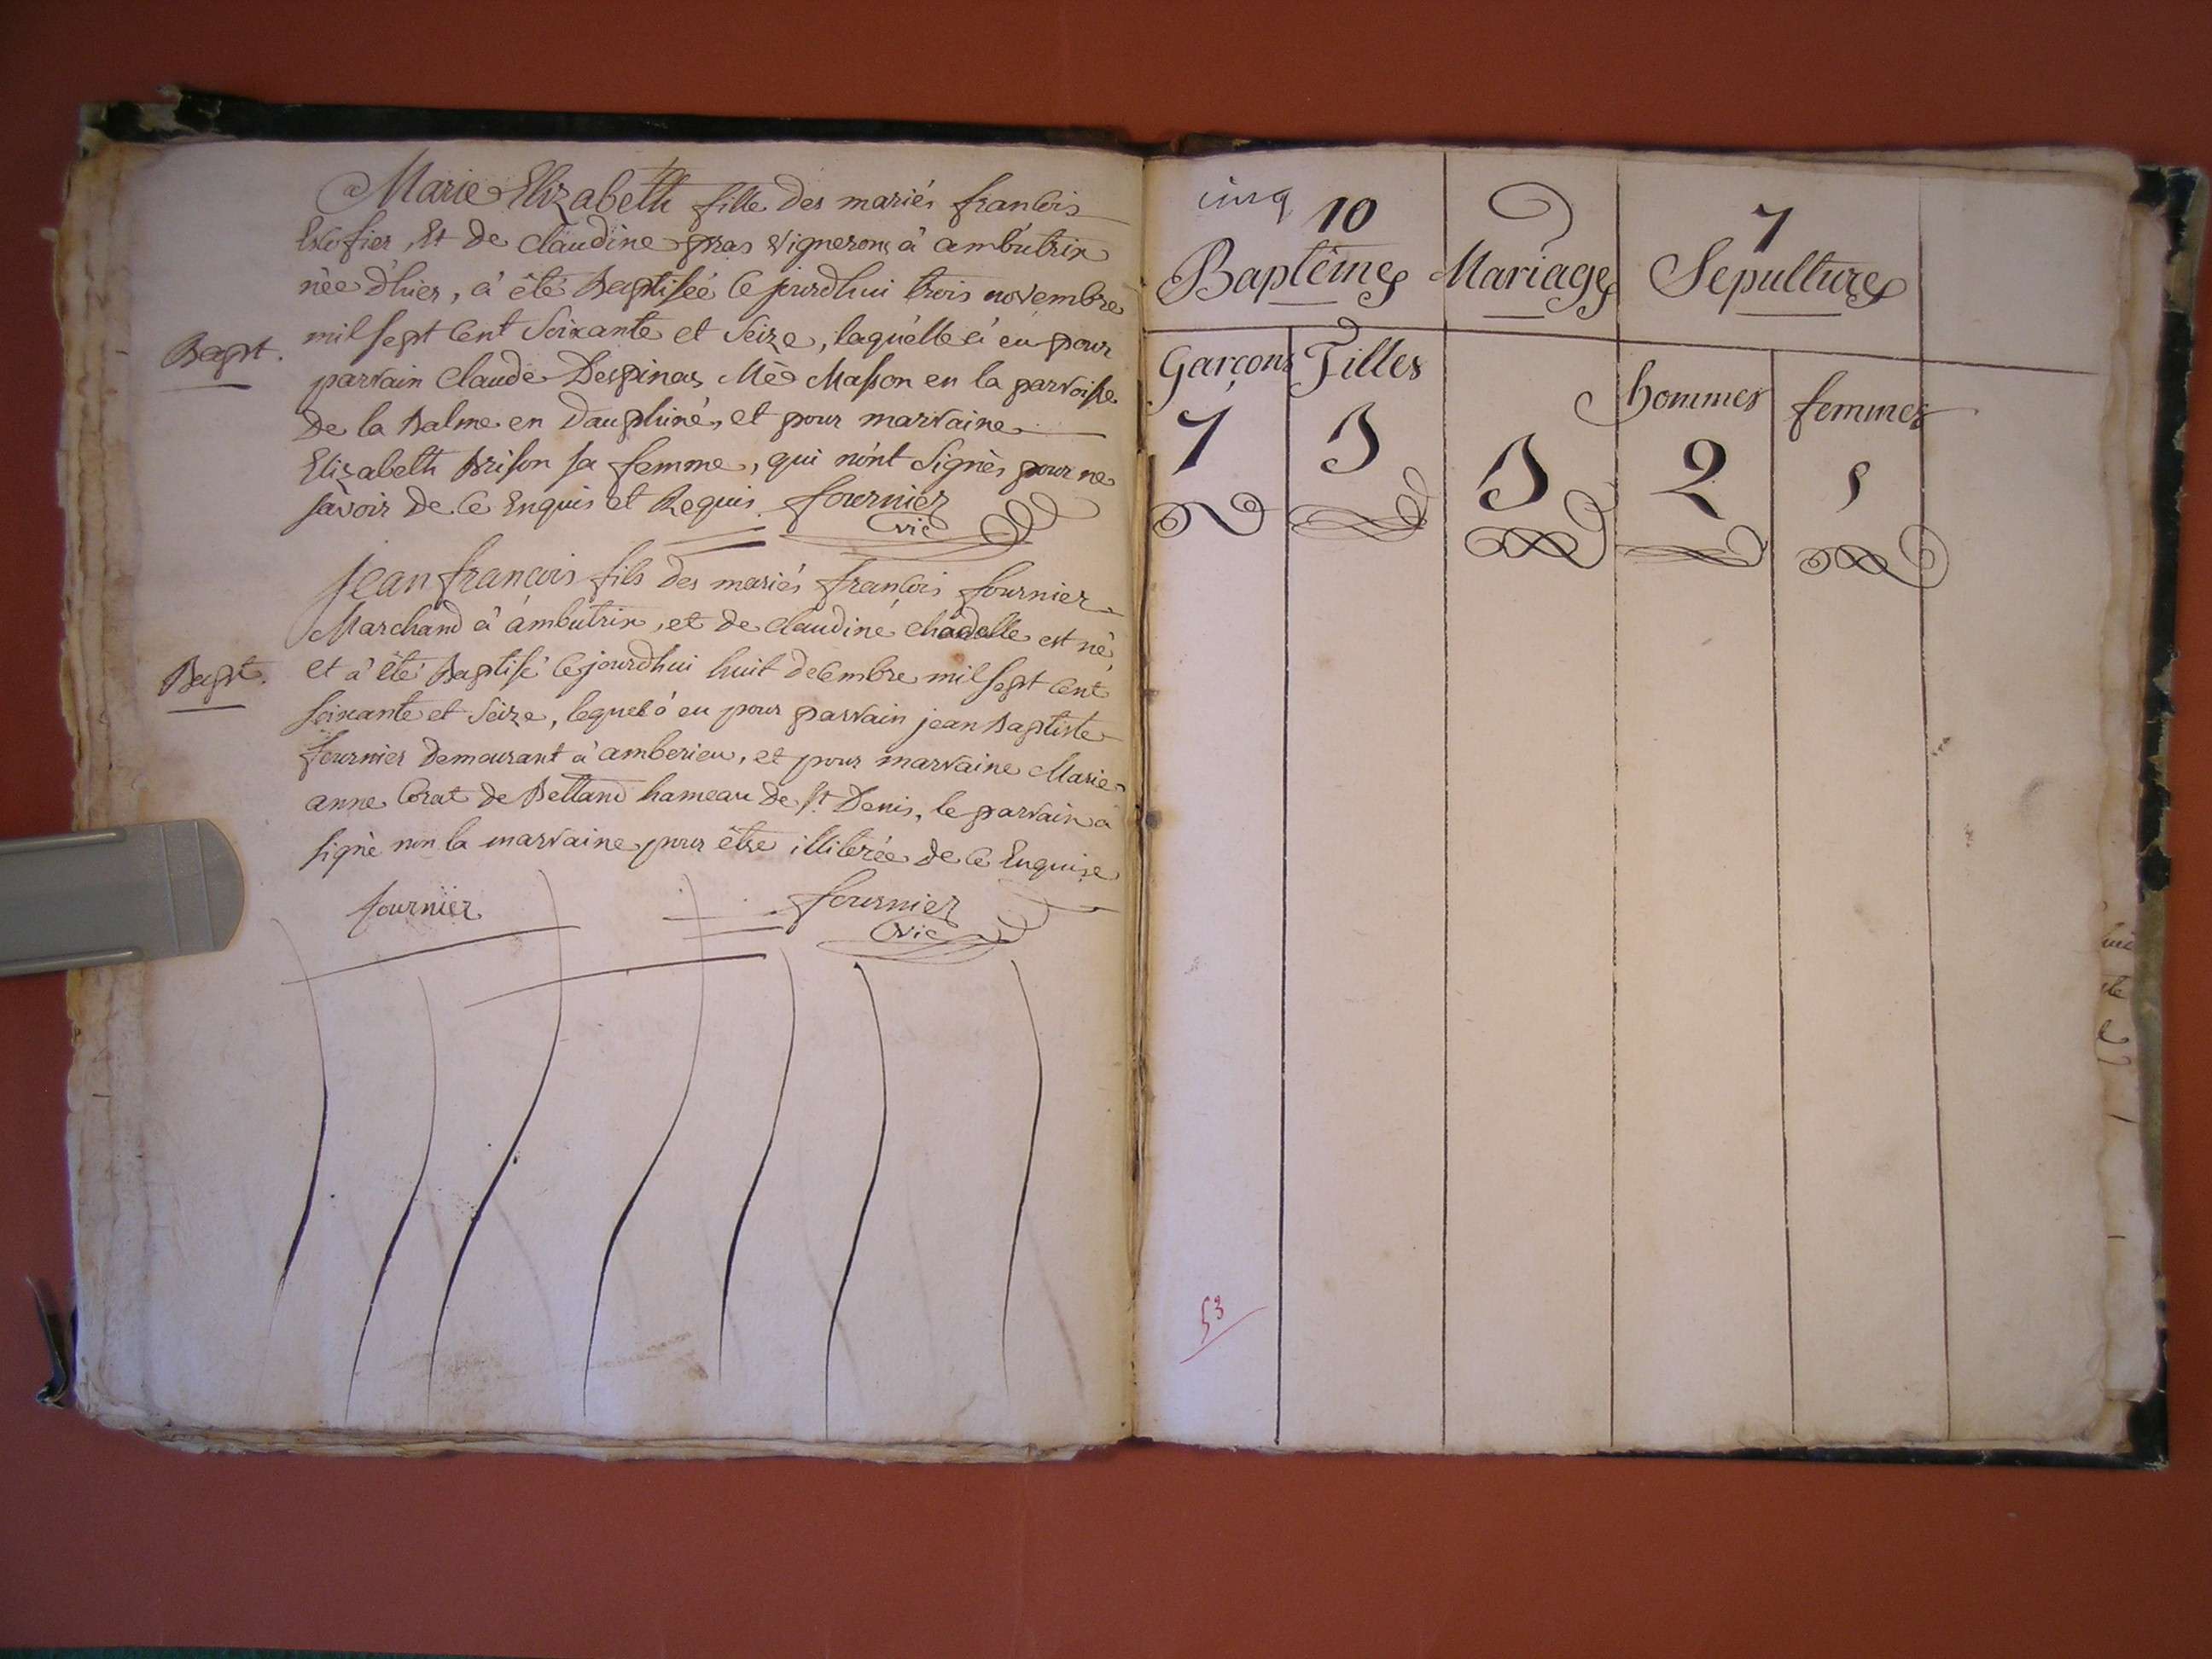 Marie Elizabeth fille des mariés francois
Escofier, Et de claudine gras vignerons à ambutrix
née d'hier, à été Baptisée cejourdhui trois novembre
mil sept cent soixante et seize, laquelle à eu pour
Bapt.
parrain claude Despinas Me Masson en la parroisse
de la Balme en Dauphiné, et pour marraine
Elizabeth Brison sa femme, qui n'ont signès pour ne
savoir de ce Enquis et Requis. fournier
vic
jean françois fils des mariés françois fournier
Marchand à ambutrix, et de claudine chadelle est né
et à été Baptisé cejourdhui huit decembre mil sept cent
Bapt.
soixante et seize, lequel à eu pour parrain jean Baptiste
fournier demeurant à amberieu, et pour marraine Marie
anne Corat de Bettand hameau de St Denis, le parrain à
signè non la marraine pour être illiterée de ce Enquise
fournier fournier
vic
cinq 10 7
Baptêmes Mariages Sepultures
Garçons Filles hommes femmes
7 3 3 2 5
53